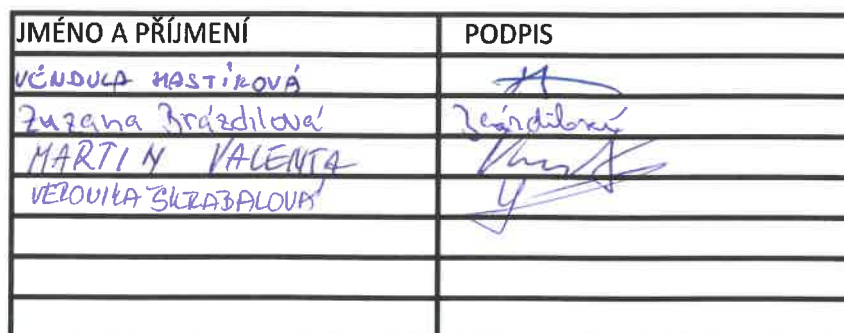 JMÉNO A PŘÍJMENÍ PODPIS
VENDULA MASTÍKOVÁ
Zuzana Brázdilová Brázdilová
MARTIN VALENTA
VERONIKA ŠKRABALOVÁ